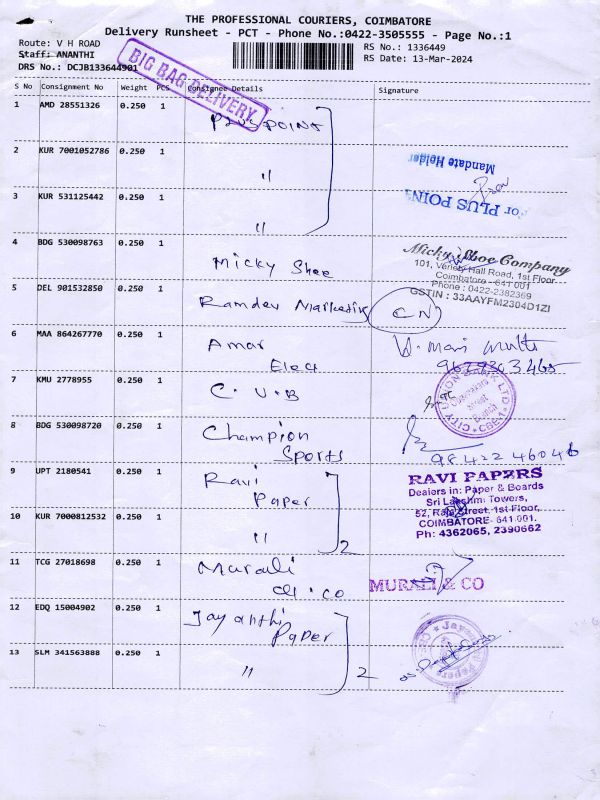 THE PROFESSIONAL COURIERS, COIMBATORE
Delivery Runsheet - PCT - Phone No.:0422-3505555 - Page No.:1
Route: V H ROAD
RS No.: 1336449
Staff: ANANTHI
RS Date: 13-Mar-2024
DRS No.: DCJB133644901
BIG BAG DELIVERY
S No Consignment No Weight PCS Consignee Details Signature
1 AMD 28551326 0.250 1 PLUS POINT
2 KUR 7001052786 0.250 1 "
Mandate Holder
3 KUR 531125442 0.250 1 "
For PLUS POINT
4 BDG 530098763 0.250 1 Micky Shoe
Micky Shoe Company
101, Veriety Hall Road, 1st Floor
Coimbatore - 641 001
Phone : 0422-2382369
GSTIN : 33AAYFM2304D1ZI
5 DEL 901532850 0.250 1 Ramdev Marketing CN
6 MAA 864267770 0.250 1 Amar
Elec
7 KMU 2778955 0.250 1 C.U.B
CITY UNION BANK LTD
CBE-1
8 BDG 530098720 0.250 1 Champion
Sports
98422 46046
9 UPT 2180541 0.250 1 Ravi
Paper
RAVI PAPERS
Dealers in: Paper & Boards
Sri Lakshmi Towers,
52, Raja Street, 1st Floor,
COIMBATORE- 641 001.
Ph: 4362065, 2390662
10 KUR 7000812532 0.250 1 " 2
11 TCG 27018698 0.250 1 Murali
& co
MURALI & CO
12 EDQ 15004902 0.250 1 Jayanthi
Paper
13 SLM 341563888 0.250 1 " 2